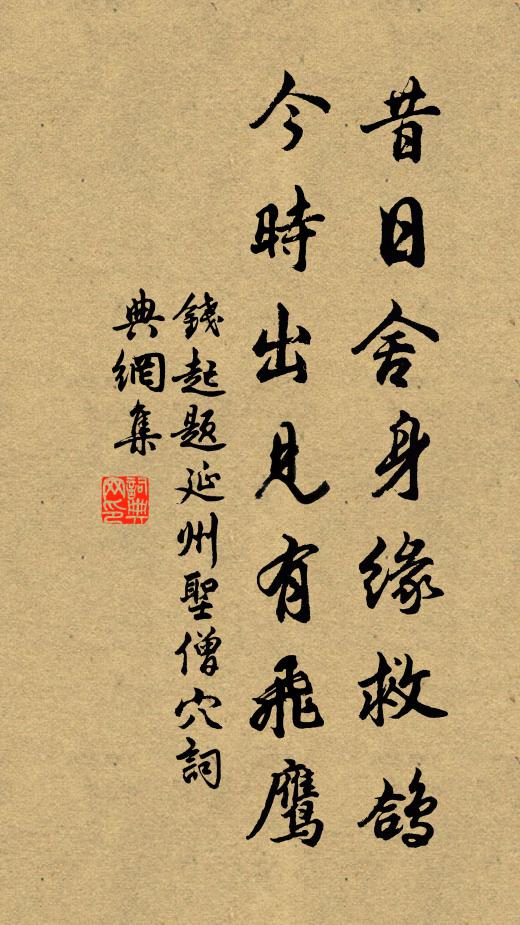 昔日舍身緣救鴿
今時出見有飛鷹
錢起題延州聖僧穴詞
典網集
詞典
网印